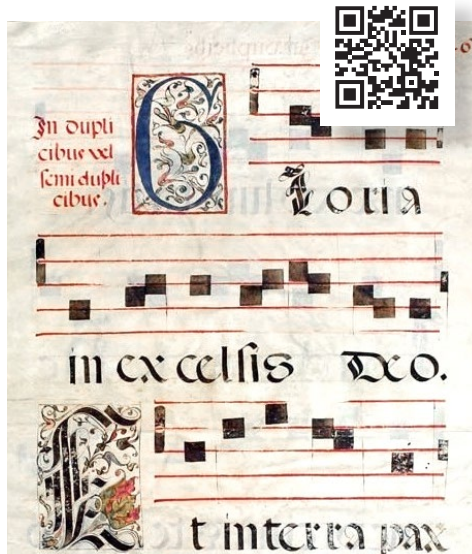 In dupli
cibus vel
semi dupli
cibus.
Gloria
in excelsis Deo.
Et in terra pax